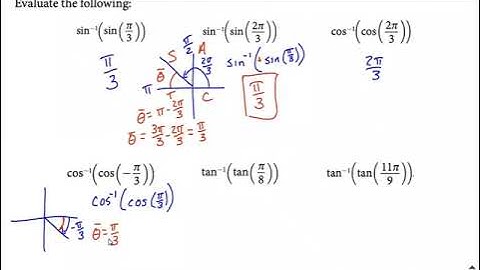 Evaluate the following:
sin⁻¹(sin(π/3)) sin⁻¹(sin(2π/3)) cos⁻¹(cos(2π/3))
π/3
π/2
S A
θ̄ 2π/3
π
T C
sin⁻¹(+sin(π/3))
π/3
2π/3
θ̄ = π - 2π/3
θ̄ = 3π/3 - 2π/3 = π/3
cos⁻¹(cos(-π/3)) tan⁻¹(tan(π/8)) tan⁻¹(tan(11π/9)).
cos⁻¹(cos(π/3))
-π/3
θ̄ = π/3